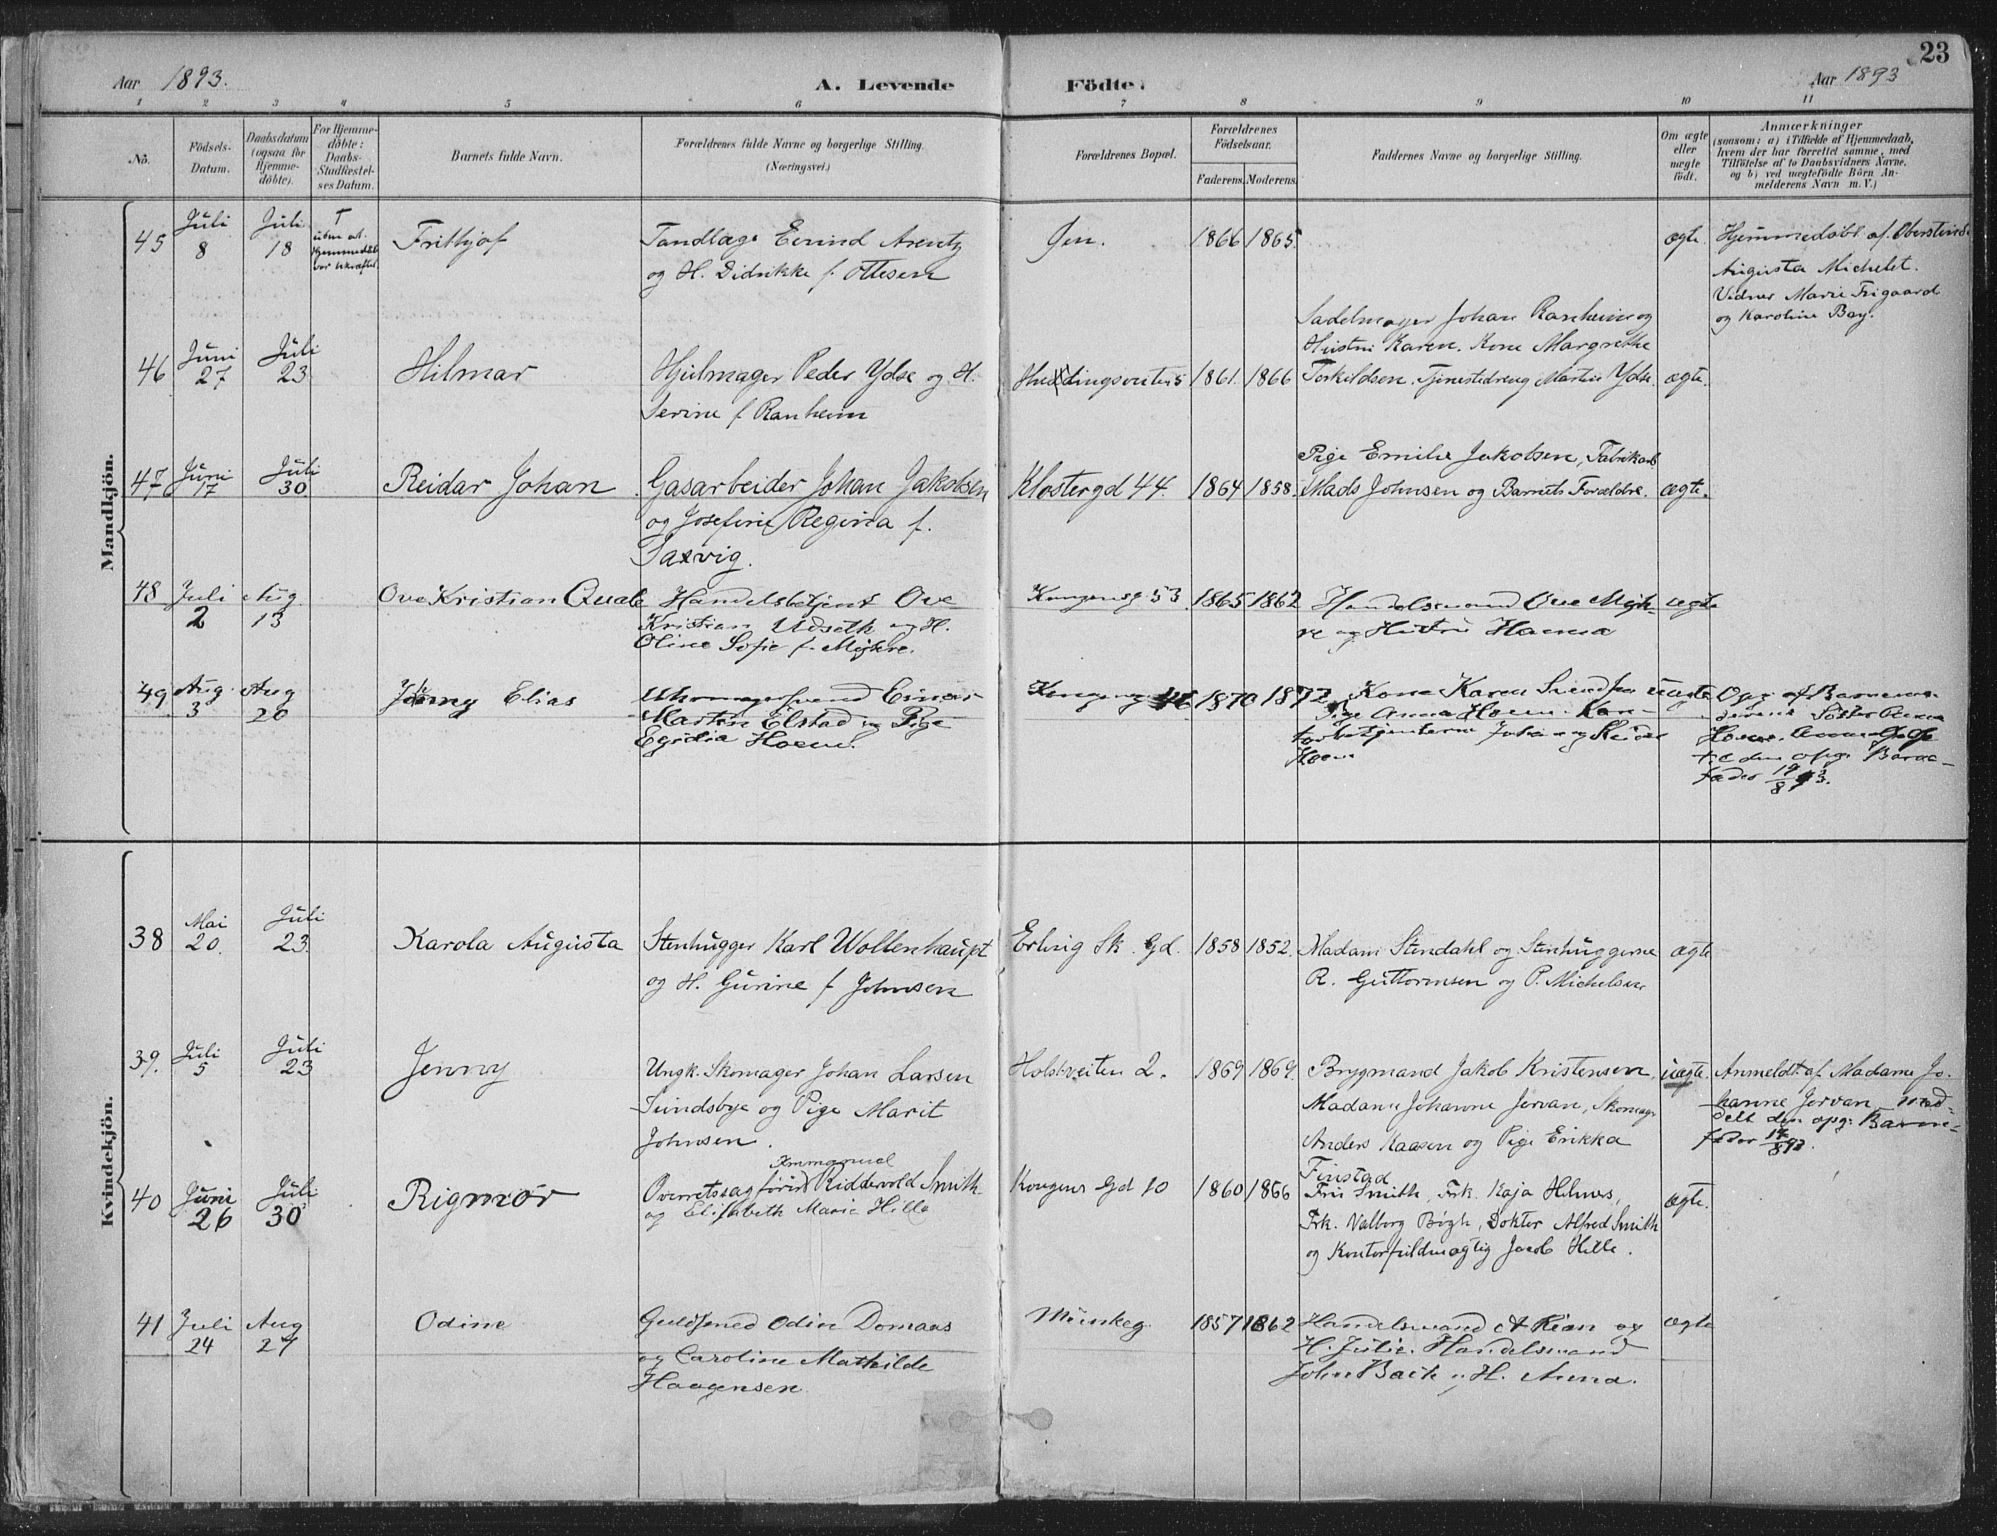 23
Aar 1893. A. Levende Födte. Aar 1893
1 2 3 4 5 6 7 8 9 10 11
No.
Födsels-
Datum.
Daabsdatum
(ogsaa for
Hjemme-
döbte).
For Hjemme-
döbte:
Daabs-
Stadfæstel-
ses Datum.
Barnets fulde Navn.
Forældrenes fulde Navne og borgerlige Stilling.
(Næringsvei.)
Forældrenes Bopæl.
Forældrenes
Födselsaar.
Faderens. Moderens.
Faddernes Navne og borgerlige Stilling.
Om ægte
eller
uægte
födt.
Anmærkninger
(saasom: a) i Tilfælde af Hjemmedaab,
hvem der har forrettet samme, med
Tilföielse af to Daabsvidners Navne,
og b) ved uægtefödte Börn An-
melderens Navn m. V.)
Mandkjön.
45
Juli
8
Juli
18
†
uden at
Hjemmedaab
var bekræftet.
Frithjof
Tandlæge Eivind Arentz
og H. Didrikke f. Ottesen
Jen.
1866 1865
ægte.
Hjemmedöbt af Oberstinde
Augusta Michelet.
Vidner Marie Frigaard
og Karoline Bay.
46
Juni
27
Juli
23
Hilmar
Hjulmager Peder Ydse og H.
Serine f. Ranheim
1861. 1866
Sadelmager Johan Ranheim og
Hustru Karen. Kone Margrethe
Torkildsen. Tjenestedreng Martin Ydse.
ægte.
47
Juni
17
Juli
30
Reidar Johan
Gasarbeider Johan Jakobsen
og Josefine Regina f.
Saxvig.
Klostergd 44.
1864 1858.
Pige Emilie Jakobsen, Fabrikarb
Mads Johnsen og Barnets Forældre.
ægte.
48
Juli
2
Aug.
13
Ove Kristian Quale
Handelsbetjent Ove
Kristian Udseth og H.
Oline Sofie f. Mjøhre.
Kongensg 53
1865 1862
Handelsmand Ove Mjøh-
re og Hustru Hanna
ægte
49
Aug.
3
Aug
20
Jenny Elias
Uhrmagersvend Einar
Martin Elstad og Pige
Egidia Hoem.
Kongensg 46
1870 1872
Kone Karen Svendsen
Pige Anna Hoem. Kon-
torbetjenterne Johan og
Hoem
uægte
Opg. af Barnemo-
derens Söster Anna
Hoem.
til den opg. Barne-
fader 19/8 93.
Kvindekjön.
38
Mai
20.
Juli
23.
Karola Augusta
Stenhugger Karl Woltenhaupt
og H. Gurine f. Johnsen
Erling Sk. Gd.
1858 1852.
Madam Stendahl og Stenhuggerne
R. Guttormsen og P. Michelsen
ægte
39.
Juli
5
Juli
23
Jenny
Ungk. Skomager Johan Larsen
Sundsbye og Pige Marit
Johnsen.
Holstveiten 2.
1869 1869.
Brygmand Jakob Kristensen,
Madame Johanne Jervan, Skomager
Anders Kaasen og Pige Erikka
Finstad
uægte.
Anmeldt af Madame Jo-
hanne Jervan med-
delt den opg. Barne-
fader 14/8 93.
40
Juni
26
Juli
30
Rigmor
Emmanuel
Overretssagförer Riddervold Smith
og Elisabeth Marie Hille
Kongens Gd 10
1860 1866
Fru Smith, Frk. Kaja Holmes,
Frk. Valborg Bögh, Doktor Alfred Smith
og Kontorfuldmægtig Jacob Hille.
ægte.
41
Juli
24
Aug
27
Odine
Guldsmed Odin Domaas
og Caroline Mathilde
Haagensen
Munkeg.
1857 1862
Handelsmand A Rian og
H. Julie. Handelsmand
John Backe og H. Anna.
ægte